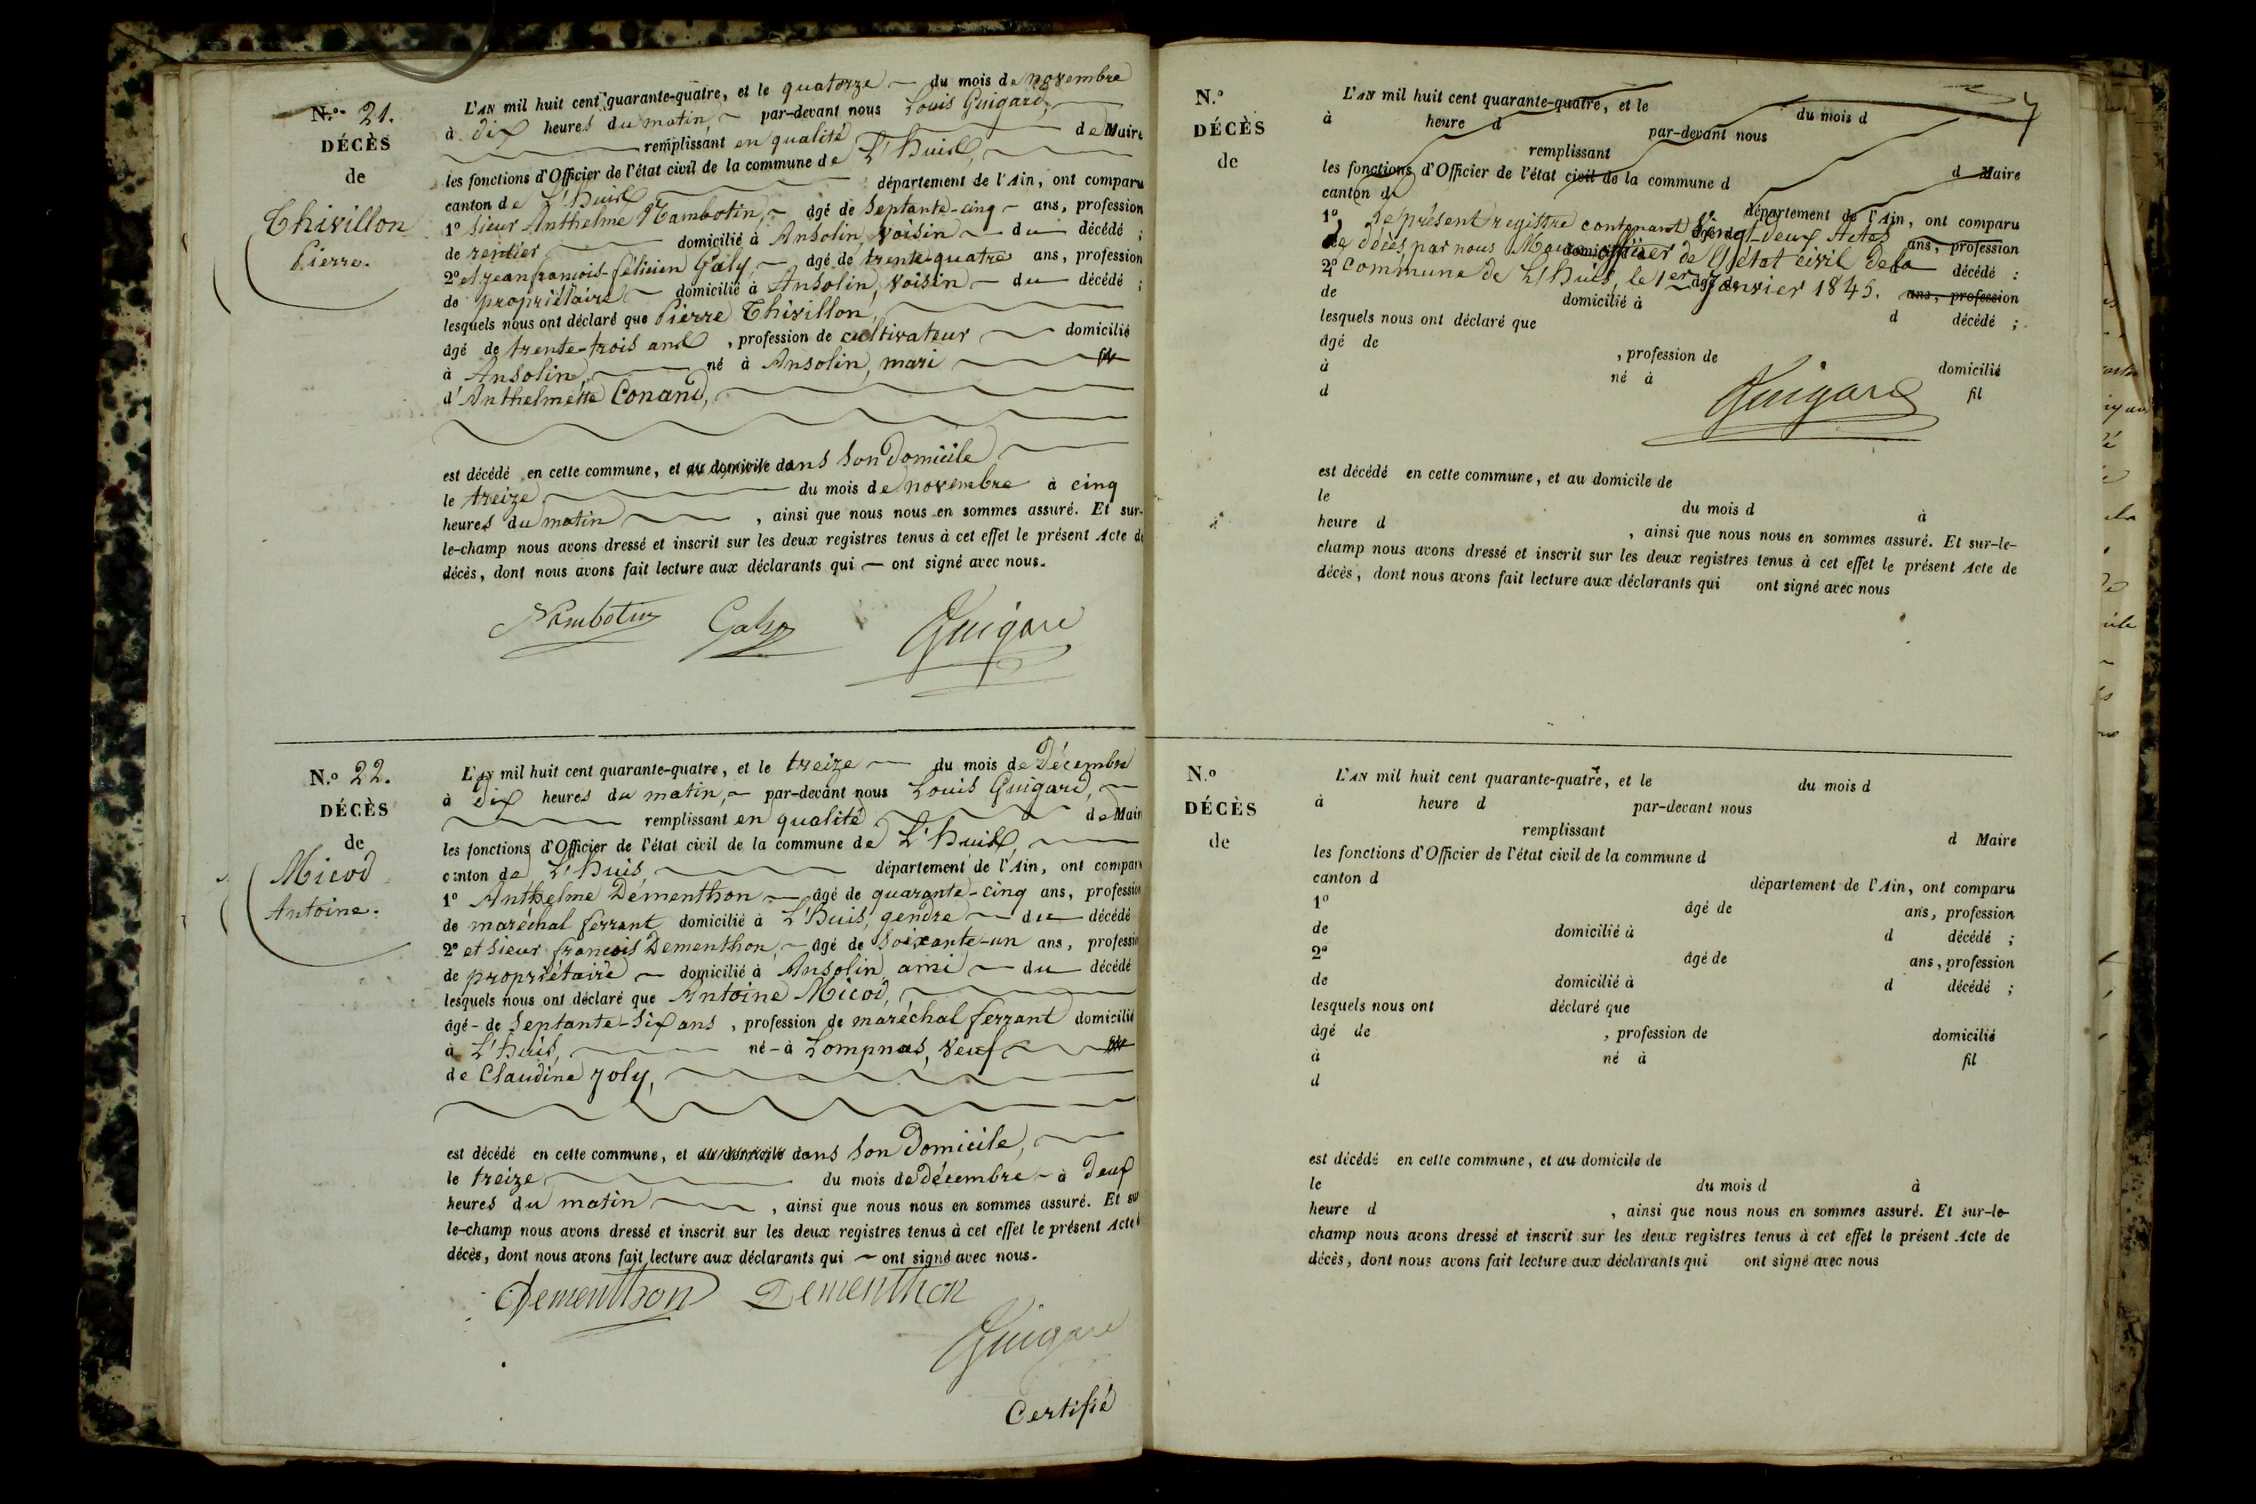 N.º 21.
DÉCÈS
de
Thivillon
Pierre.
L'AN mil huit cent quarante-quatre, et le quatorze du mois de novembre
à dix heures du matin, par-devant nous Louis Guigard,
remplissant en qualité de Maire
les fonctions d'Officier de l'état civil de la commune de L'huis,
canton de L'huis département de l'Ain, ont comparu
1º sieur Anthelme Nambotin, âgé de septante-cinq ans, profession
de rentier domicilié à Ansolin, voisin du décédé ;
2º et jean françois-félicien Galy, âgé de trente-quatre ans, profession
de propriétaire domicilié à Ansolin, voisin du décédé ;
lesquels nous ont déclaré que Pierre Thivillon,
âgé de trente-trois ans , profession de cultivateur domicilié
à Ansolin, né à Ansolin, mari
d'Anthelmette Conand,
est décédé en cette commune, et au domicile dans son domicile
le treize du mois de novembre à cinq
heures du matin , ainsi que nous nous en sommes assuré. Et sur-
le-champ nous avons dressé et inscrit sur les deux registres tenus à cet effet le présent Acte de
décès, dont nous avons fait lecture aux déclarants qui ont signé avec nous.
Nambotin Galy Guigard
N.º 22.
DÉCÈS
de
Micod
Antoine.
L'AN mil huit cent quarante-quatre, et le treize du mois de Décembre
à dix heures du matin, par-devant nous Louis Guigard,
remplissant en qualité de Maire
les fonctions d'Officier de l'état civil de la commune de L'huis,
canton de L'huis, département de l'Ain, ont comparu
1º Anthelme Démenthon âgé de quarante-cinq ans, profession
de maréchal ferrant domicilié à L'huis, gendre du décédé
2º et sieur françois Dementhon, âgé de soixante-un ans, profession
de propriétaire domicilié à Ansolin ami du décédé
lesquels nous ont déclaré que Antoine Micod,
âgé de septante-six ans , profession de maréchal ferrant domicilié
à L'huis, né à Lompnas, veuf
de Claudine Joly,
est décédé en cette commune, et au domicile dans son Domicile,
le treize du mois de décembre à deux
heures du matin , ainsi que nous nous en sommes assuré. Et sur
le-champ nous avons dressé et inscrit sur les deux registres tenus à cet effet le présent Acte d
décès, dont nous avons fait lecture aux déclarants qui ont signé avec nous.
Dementhon Dementhon
Guigard
Certifié
N.º
DÉCÈS
de
L'AN mil huit cent quarante-quatre, et le du mois d
à heure d par-devant nous
remplissant d Maire
les fonctions d'Officier de l'état civil de la commune d
canton d département de l'Ain, ont comparu
1º Le présent registre contenant Vingt-deux Actes ans, profession
de décès par nous Maire officier de l'état civil de la décédé ;
2º commune de L'huis, le 1er Janvier 1845. ans, profession
de domicilié à d décédé ;
lesquels nous ont déclaré que
âgé de , profession de domicilié
à né à fil
d
Guigard
est décédé en cette commune, et au domicile de
le du mois d à
heure d , ainsi que nous nous en sommes assuré. Et sur-le-
champ nous avons dressé et inscrit sur les deux registres tenus à cet effet le présent Acte de
décès, dont nous avons fait lecture aux déclarants qui ont signé avec nous
N.º
DÉCÈS
de
L'AN mil huit cent quarante-quatre, et le du mois d
à heure d par-devant nous
remplissant d Maire
les fonctions d'Officier de l'état civil de la commune d
canton d département de l'Ain, ont comparu
1º âgé de ans, profession
de domicilié à d décédé ;
2º âgé de ans, profession
de domicilié à d décédé ;
lesquels nous ont déclaré que
âgé de , profession de domicilié
à né à fil
d
est décédé en cette commune, et au domicile de
le du mois d à
heure d , ainsi que nous nous en sommes assuré. Et sur-le-
champ nous avons dressé et inscrit sur les deux registres tenus à cet effet le présent Acte de
décès, dont nous avons fait lecture aux déclarants qui ont signé avec nous